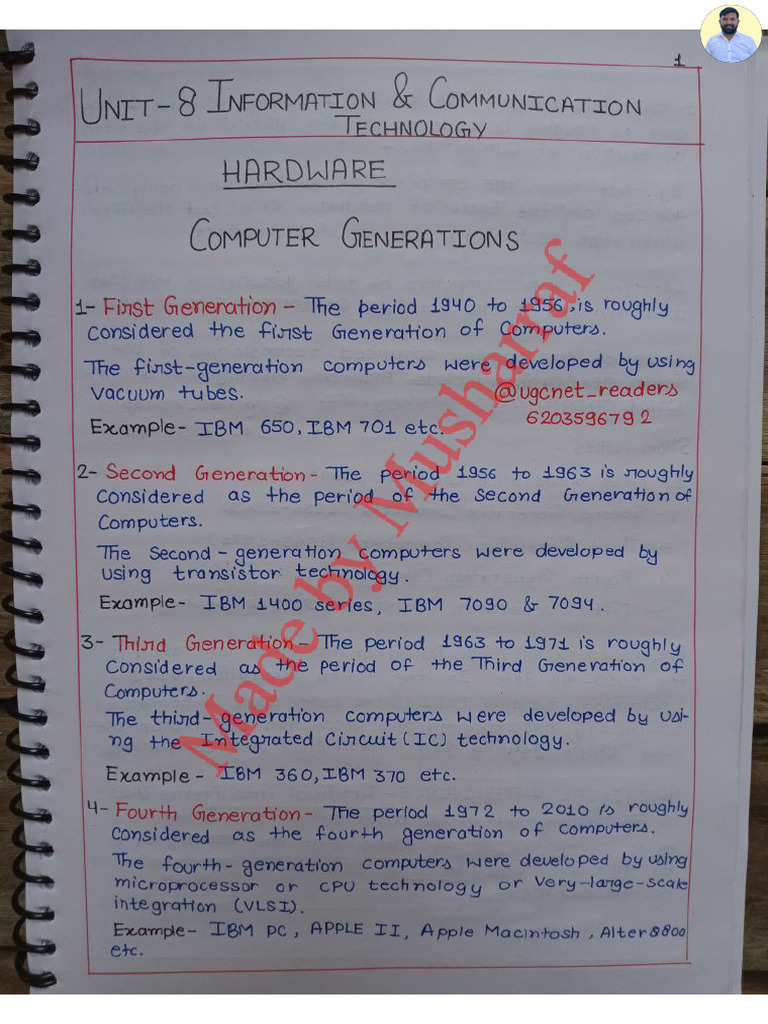 1
UNIT-8 INFORMATION & COMMUNICATION
TECHNOLOGY
HARDWARE
COMPUTER GENERATIONS
1- First Generation - The period 1940 to 1956, is roughly
considered the first Generation of Computers.
The first-generation computers were developed by using
vacuum tubes.
@ugcnet_readers
6203596792
Example- IBM 650, IBM 701 etc.
2- Second Generation - The period 1956 to 1963 is roughly
considered as the period of the Second Generation of
Computers.
The Second-generation computers were developed by
using transistor technology.
Example- IBM 1400 series, IBM 7090 & 7094.
3- Third Generation - The period 1963 to 1971 is roughly
considered as the period of the Third Generation of
Computers.
The third-generation computers were developed by usi-
ng the Integrated Circuit (IC) technology.
Example - IBM 360, IBM 370 etc.
4- Fourth Generation - The period 1972 to 2010 is roughly
considered as the fourth generation of computers.
The fourth-generation computers were developed by using
microprocessor or CPU technology or Very-large-scale
integration (VLSI).
Example- IBM PC, APPLE II, Apple Macintosh, Alter 8800
etc.
Made by Musharraf